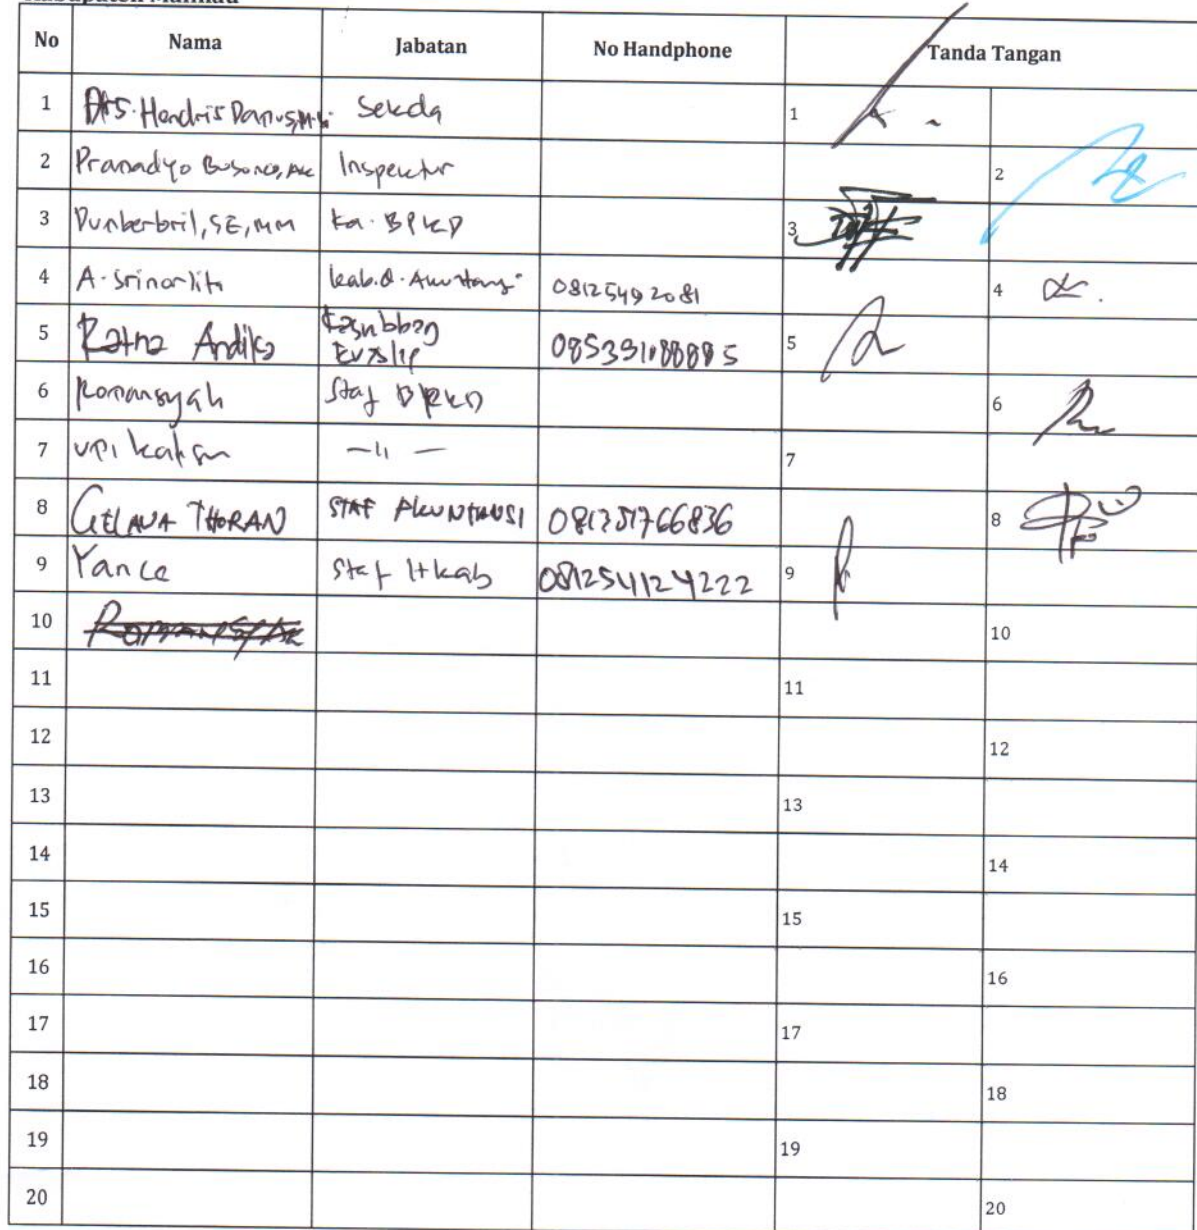 No Nama Jabatan No Handphone Tanda Tangan
1 Drs. Hendris Damus, M.Si Sekda 1
2 Pranadyo Busono, Ak Inspektur 2
3 Dumberbril, SE, MM Ka. BPKD 3
4 A. Srinarlita 08125492081 4
5 Ratna Andika Kasubbag
Evaslip 085391088885 5
6 Romansyah Staf BPKD 6
7 Upi –11– 7
8 GELAWA THORAN STAF AKUNTANSI 081251766836 8
9 Yance Staf Itkab 081254124222 9
10 10
11 11
12 12
13 13
14 14
15 15
16 16
17 17
18 18
19 19
20 20